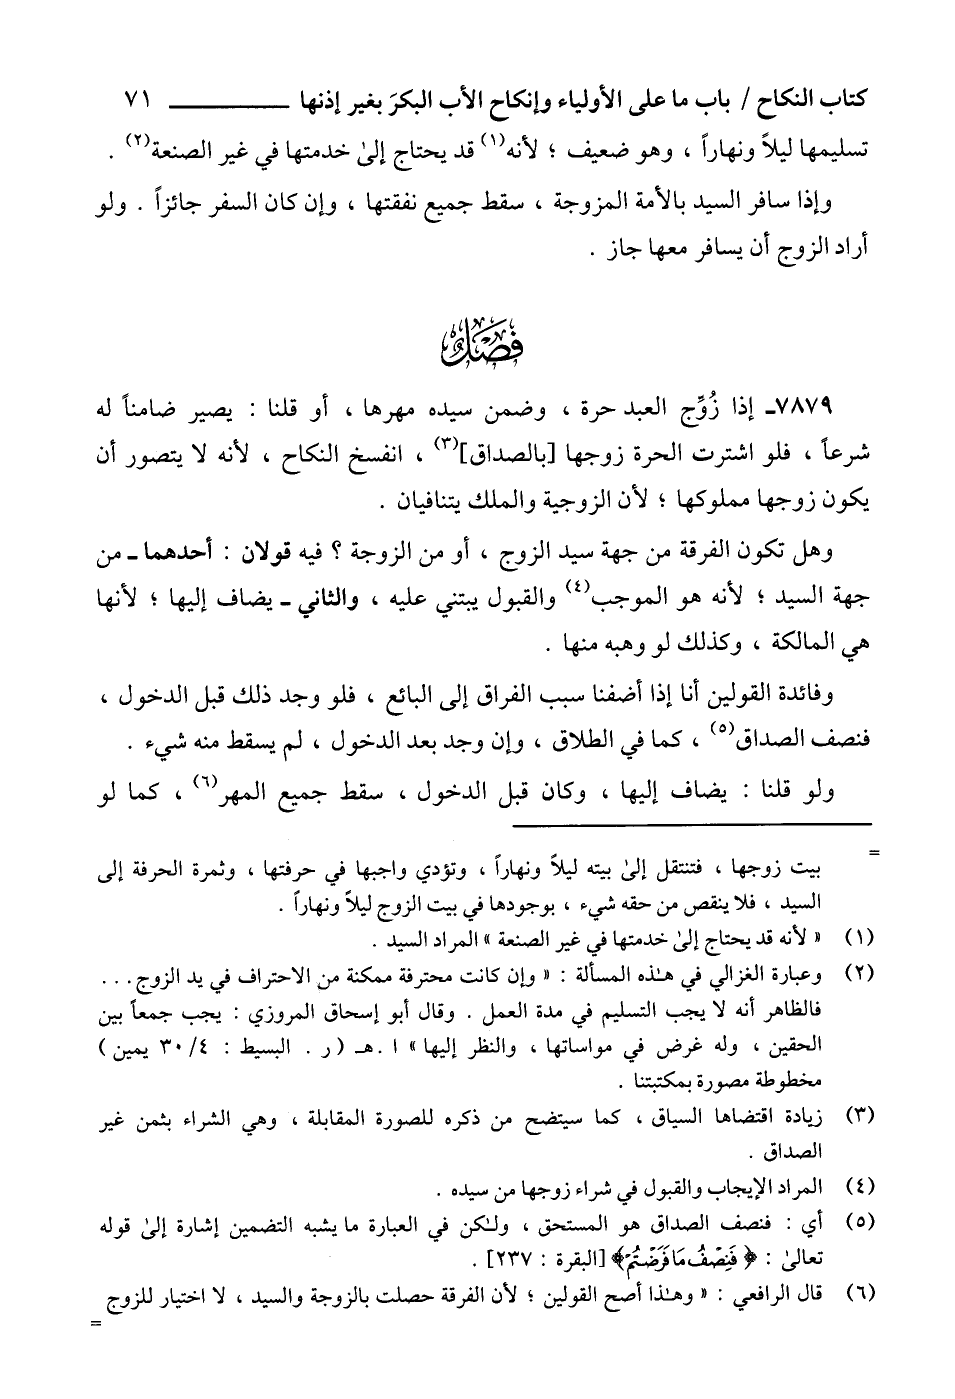 كتاب النكاح / باب ما على الأولياء وإنكاح الأب البكرَ بغير إذنها ــــــــــــــ ٧١
تسليمها ليلاً ونهاراً ، وهو ضعيف ؛ لأنه(١) قد يحتاج إلىٰ خدمتها في غير الصنعة(٢) .
وإذا سافر السيد بالأمة المزوجة ، سقط جميع نفقتها ، وإن كان السفر جائزاً . ولو
أراد الزوج أن يسافر معها جاز .
فصل
٧٨٧٩ـ إذا زُوِّج العبد حرة ، وضمن سيده مهرها ، أو قلنا : يصير ضامناً له
شرعاً ، فلو اشترت الحرة زوجها [بالصداق](٣) ، انفسخ النكاح ، لأنه لا يتصور أن
يكون زوجها مملوكها ؛ لأن الزوجية والملك يتنافيان .
وهل تكون الفرقة من جهة سيد الزوج ، أو من الزوجة ؟ فيه قولان : أحدهما ـ من
جهة السيد ؛ لأنه هو الموجب(٤) والقبول يبتني عليه ، والثاني ـ يضاف إليها ؛ لأنها
هي المالكة ، وكذلك لو وهبه منها .
وفائدة القولين أنا إذا أضفنا سبب الفراق إلى البائع ، فلو وجد ذلك قبل الدخول ،
فنصف الصداق(٥) ، كما في الطلاق ، وإن وجد بعد الدخول ، لم يسقط منه شيء .
ولو قلنا : يضاف إليها ، وكان قبل الدخول ، سقط جميع المهر(٦) ، كما لو
=
بيت زوجها ، فتنتقل إلىٰ بيته ليلاً ونهاراً ، وتؤدي واجبها في حرفتها ، وثمرة الحرفة إلى
السيد ، فلا ينقص من حقه شيء ، بوجودها في بيت الزوج ليلاً ونهاراً .
(١) « لأنه قد يحتاج إلىٰ خدمتها في غير الصنعة » المراد السيد .
(٢) وعبارة الغزالي في هـٰذه المسألة : « وإن كانت محترفة ممكنة من الاحتراف في يد الزوج...
فالظاهر أنه لا يجب التسليم في مدة العمل . وقال أبو إسحاق المروزي : يجب جمعاً بين
الحقين ، وله غرض في مواساتها ، والنظر إليها » ا.هـ (ر. البسيط : ٣٠/٤ يمين)
مخطوطة مصورة بمكتبتنا .
(٣) زيادة اقتضاها السياق ، كما سيتضح من ذكره للصورة المقابلة ، وهي الشراء بثمن غير
الصداق .
(٤) المراد الإيجاب والقبول في شراء زوجها من سيده .
(٥) أي : فنصف الصداق هو المستحق ، ولـٰكن في العبارة ما يشبه التضمين إشارة إلىٰ قوله
تعالىٰ : ﴿ فَنِصْفُ مَا فَرَضْتُمْ ﴾ [البقرة : ٢٣٧] .
(٦) قال الرافعي : « وهـٰذا أصح القولين ؛ لأن الفرقة حصلت بالزوجة والسيد ، لا اختيار للزوج
=